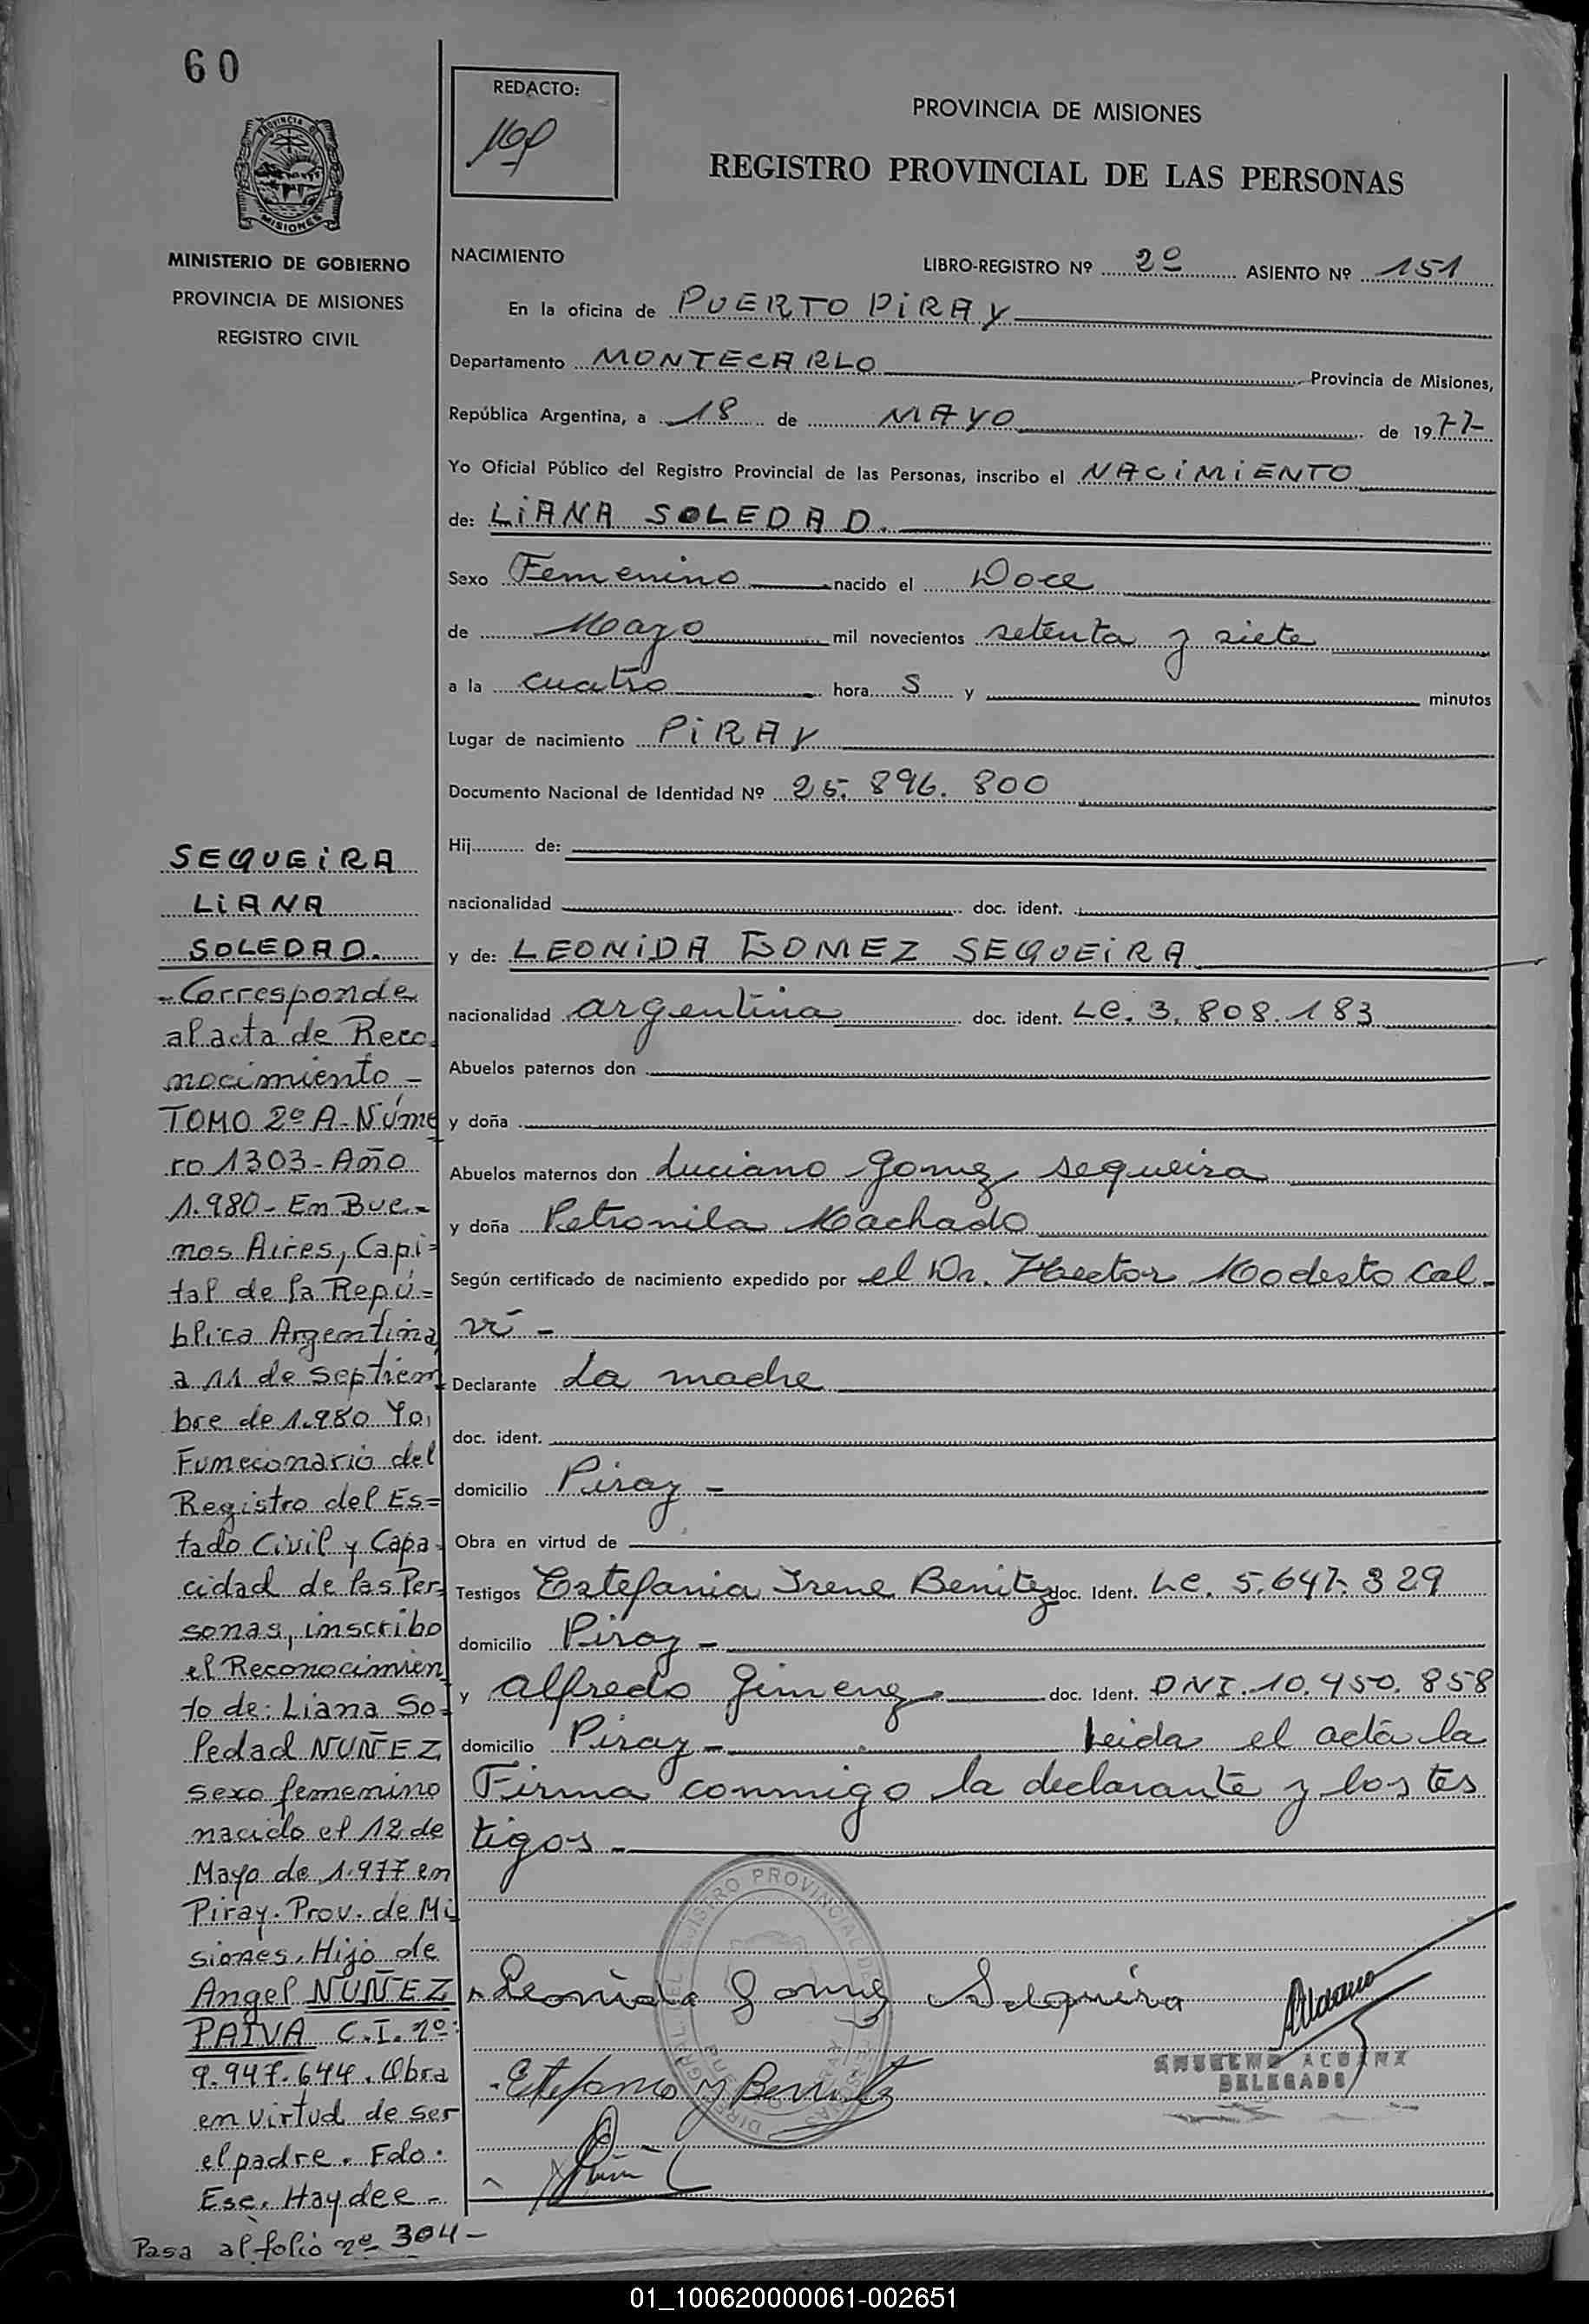 60
REDACTO:
PROVINCIA DE MISIONES
REGISTRO PROVINCIAL DE LAS PERSONAS
PROVINCIA DE
MISIONES
MINISTERIO DE GOBIERNO
PROVINCIA DE MISIONES
REGISTRO CIVIL
NACIMIENTO
LIBRO-REGISTRO Nº 2º ASIENTO Nº 151
En la oficina de PUERTO PiRAY
Departamento MONTECARLO Provincia de Misiones,
República Argentina, a 18 de MAYO de 1977-
Yo Oficial Público del Registro Provincial de las Personas, inscribo el NACiMiENTO
de: LiANA SOLEDAD.
Sexo Femenino nacido el Doce
de Mayo mil novecientos setenta y siete
a la cuatro hora S y minutos
Lugar de nacimiento PiRAY
Documento Nacional de Identidad Nº 25. 896. 800
Hij de:
nacionalidad doc. ident.
y de: LEONiDA GOMEZ SEQUEiRA
nacionalidad argentina doc. ident. LC. 3. 808. 183
Abuelos paternos don
y doña
Abuelos maternos don Luciano Gomez sequeira
y doña Petronila Machado
Según certificado de nacimiento expedido por el Dr. Hector Modesto Cal-
vi -
Declarante La madre
doc. ident.
domicilio Piray -
Obra en virtud de
Testigos Estefania Irene Benitez doc. Ident. LC. 5.647. 329
domicilio Piray -
y Alfredo Gimenez doc. Ident. DNI. 10. 450. 858
domicilio Piray - Leida el acta la
Firma conmigo la declarante y los tes
tigos -
SEQUEiRA
LiANA
SOLEDAD.
- Corresponde
al acta de Reco
nocimiento -
TOMO 2º A - Núme
ro 1303 - Año
1.980 - En Bue-
nos Aires, Capi=
tal de la Repú=
blica Argentina
a 11 de Septiem
bre de 1.980 Yo,
Funcionario del
Registro del Es=
tado Civil y Capa-
cidad de las Per-
sonas, inscribo
el Reconocimien
to de: Liana So-
ledad NUÑEZ
sexo femenino
nacido el 12 de
Mayo de 1.977 en
Piray. Prov. de Mi
siones. Hijo de
Angel NUÑEZ
PAIVA C.I. nº:
9.947.644. Obra
en virtud de ser
el padre. Fdo:
Ese. Haydee -
Pasa al folio nº 304 -
Leonida Gomez Sequeira
Estefania Y Benitez
ACOSTA
DELEGADO
01_100620000061-002651